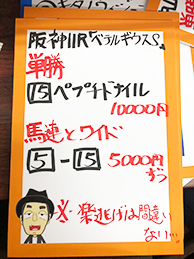 阪神11R「ベテルギウスS」
単勝
15 ペプチドナイル
10000円
馬連とワイド
5-15 5000円
ずつ
※楽逃げは間違い
ない…